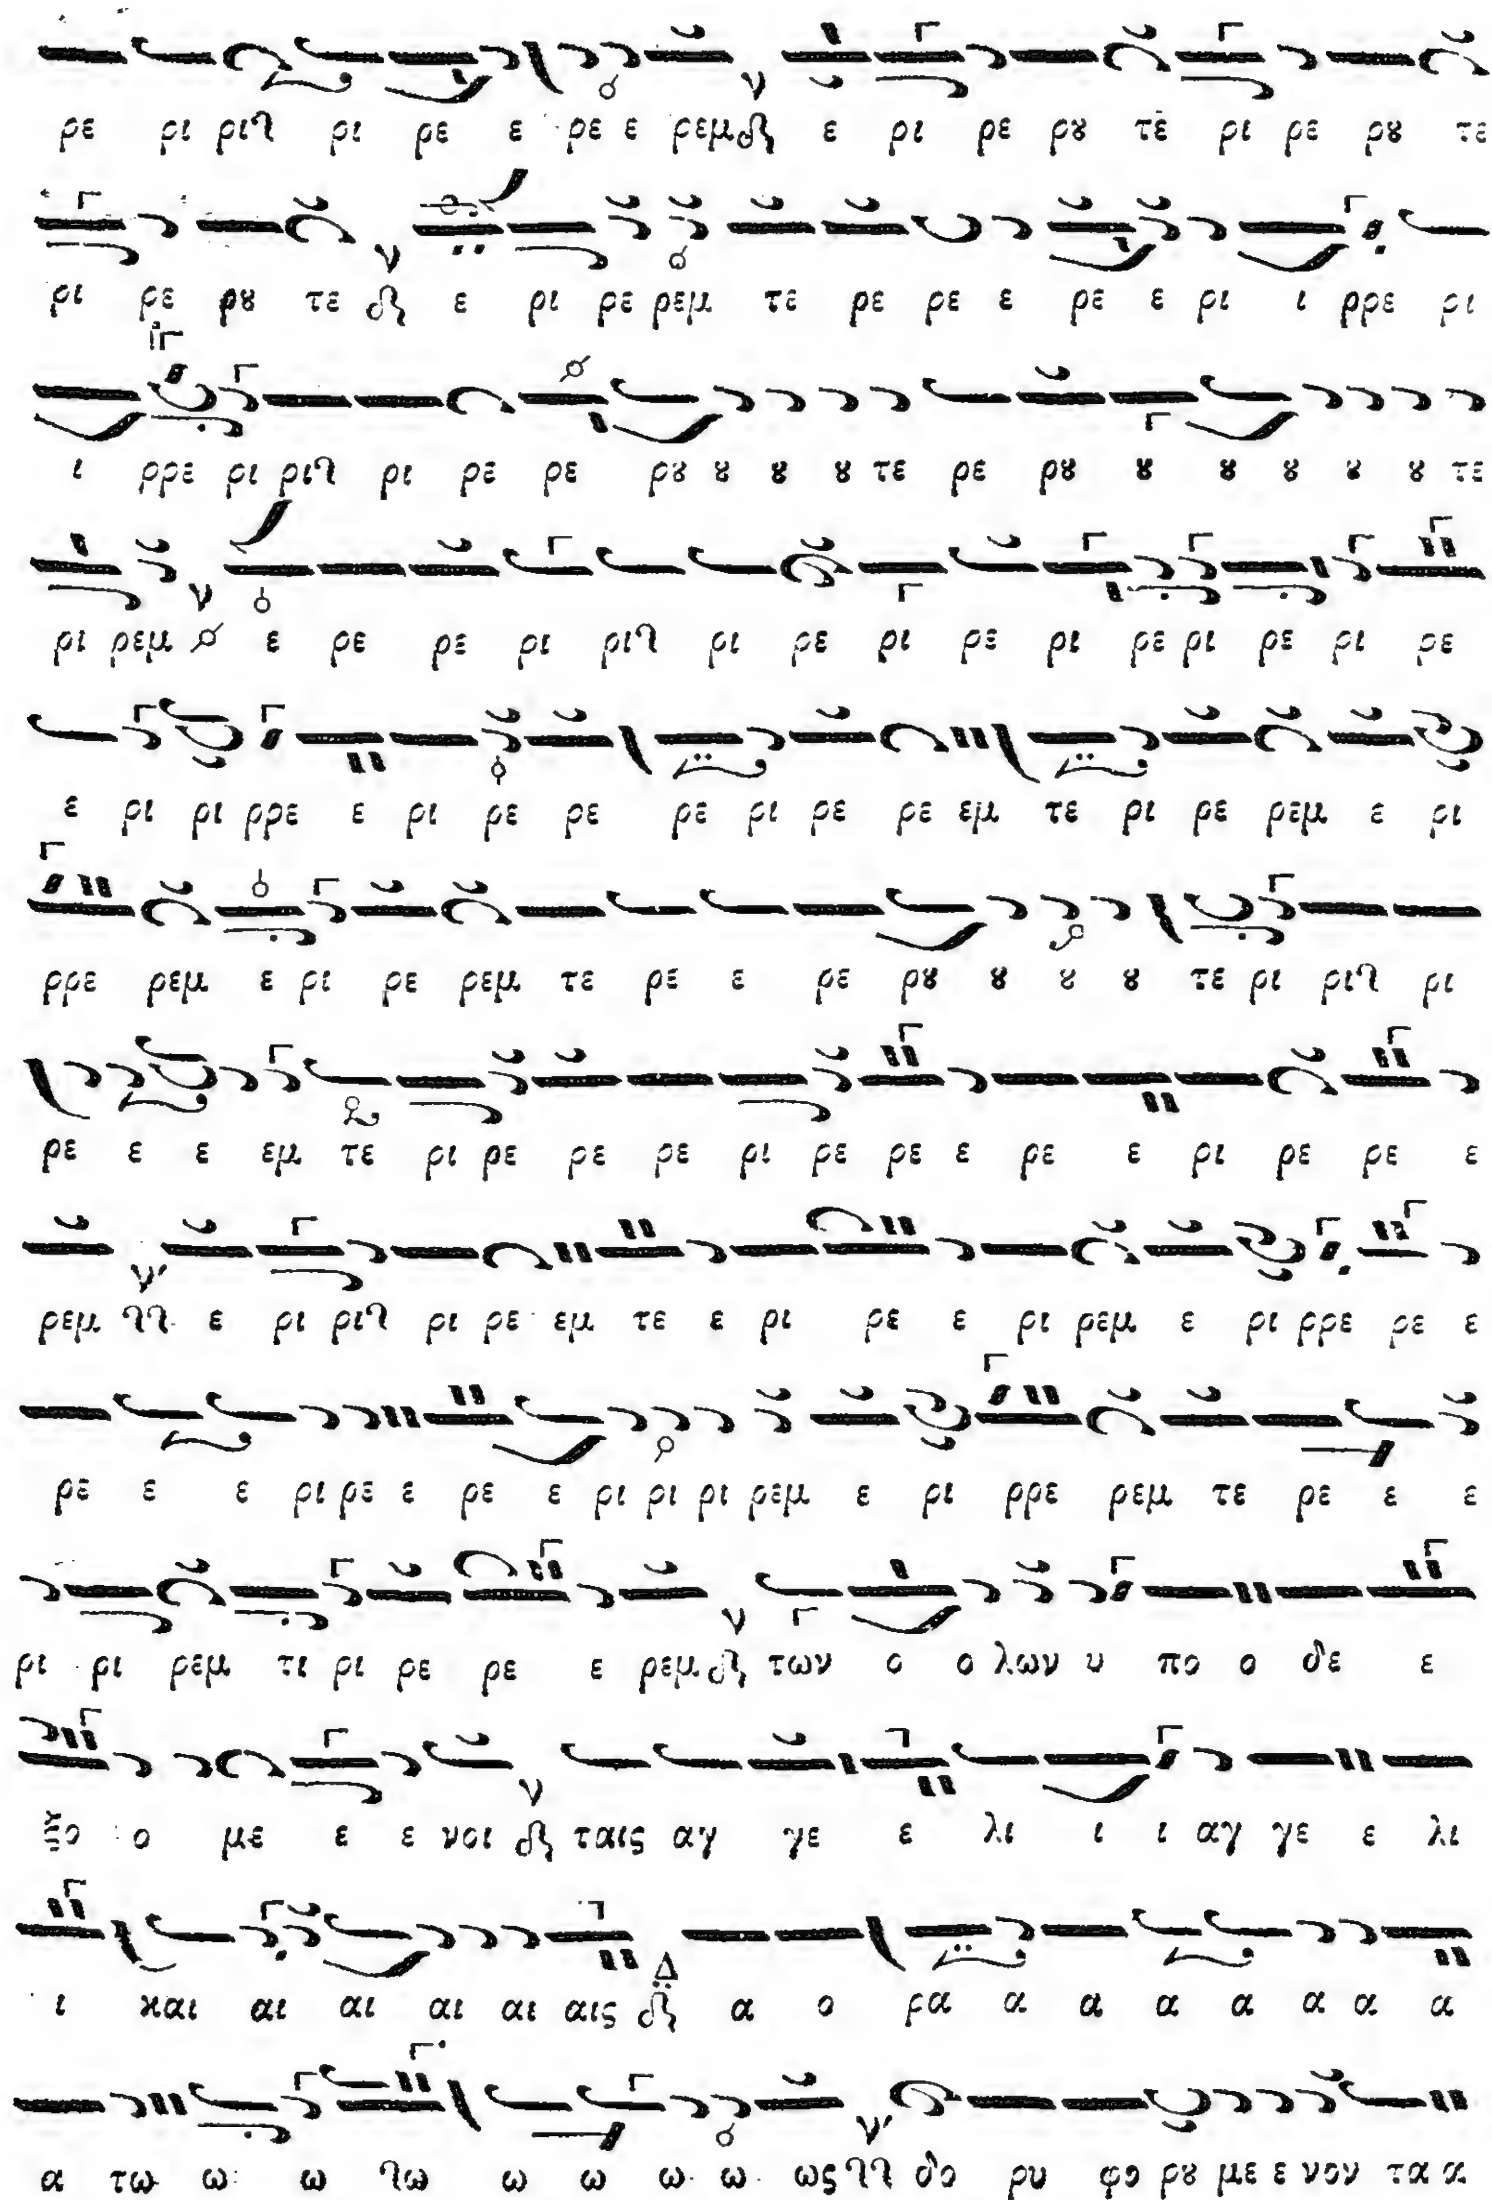 ρε ρι ριν ρι ρε ε ρε ε ρεμ ε ρι ρε ρȣ τε ρι ρε ρȣ τε
ρι ρε ρȣ τε ε ρι ρε ρεμ τε ρε ρε ε ρε ε ρι ι ρρε ρι
ι ρρε ρι ριν ρι ρε ρε ρȣ ȣ ȣ ȣ τε ρε ρȣ ȣ ȣ ȣ ȣ ȣ τε
ρι ρεμ ε ρε ρε ρι ριν ρι ρε ρι ρε ρι ρε ρι ρε ρι ρε
ε ρι ρι ρρε ε ρι ρε ρε ρε ρι ρε ρε εμ τε ρι ρε ρεμ ε ρι
ρρε ρεμ ε ρι ρε ρεμ τε ρε ε ρε ρȣ ȣ ȣ ȣ τε ρι ριν ρι
ρε ε ε εμ τε ρι ρε ρε ρε ρι ρε ρε ε ρε ε ρι ρε ρε ε
ρεμ νν ε ρι ριν ρι ρε εμ τε ε ρι ρε ε ρι ρεμ ε ρι ρρε ρε ε
ρε ε ε ρι ρε ε ρε ε ρι ρι ρι ρεμ ε ρι ρρε ρεμ τε ρε ε ε
ρι ρι ρεμ τι ρι ρε ρε ε ρεμ των ο ο λων υ πο ο δε ε
ξο ο με ε ε νοι ταις αγ γε ε λι ι ι αγ γε ε λι
ι και αι αι αι αι αις Δ α ο ρα α α α α α α α
α τω ω ω νω ω ω ω ω ως νν δο ρυ φο ρȣ με ε νον τα α